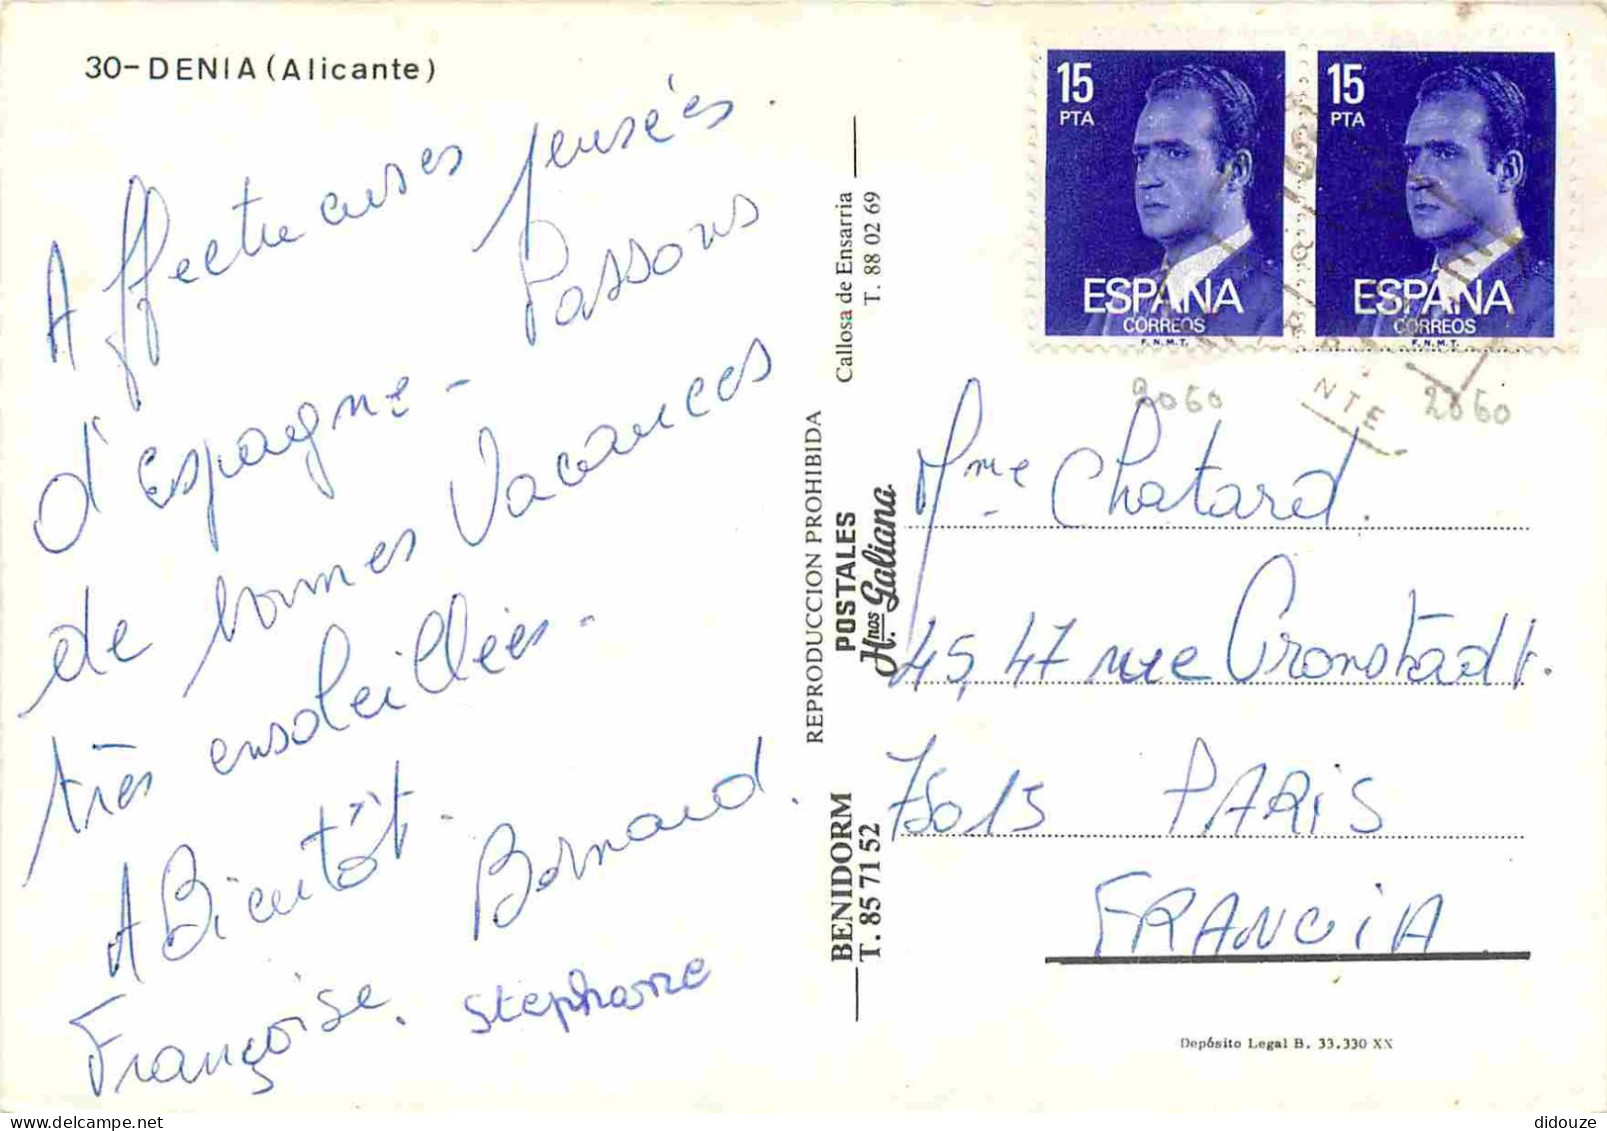 30-DENIA (Alicante)
Affectueuses pensées.
d'Espagne - Passons
de bonnes Vacances
très ensoleillées -
A Bientôt -
Bernard.
Françoise. Stephane
Callosa de Ensarria
T. 88 02 69
REPRODUCCION PROHIBIDA
POSTALES
Hnos. Galiana
BENIDORM
T. 85 71 52
15
PTA
ESPAÑA
CORREOS
F.N.M.T.
15
PTA
ESPAÑA
CORREOS
F.N.M.T.
NTE
2060
2060
Mme Chatard.
45,47 rue Cronstadt.
75015 PARIS
FRANCIA
Depósito Legal B. 33.330 XX
didouze